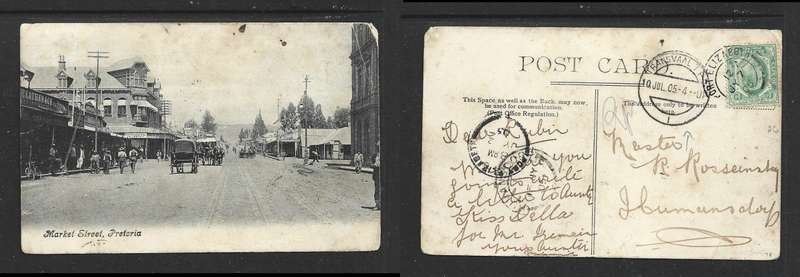 Market Street, Pretoria
POST CARD
This Space, as well as the Back, may now
be used for communication.
(Post Office Regulation.)
The Address only to be written
here.
TRANSVAAL
10 JUL 05
PORT ELIZABETH
Master
R. Rosseinsky
Humansdorf
you
going to write
a letter to Aunt
Kiss Della
for me
your auntie